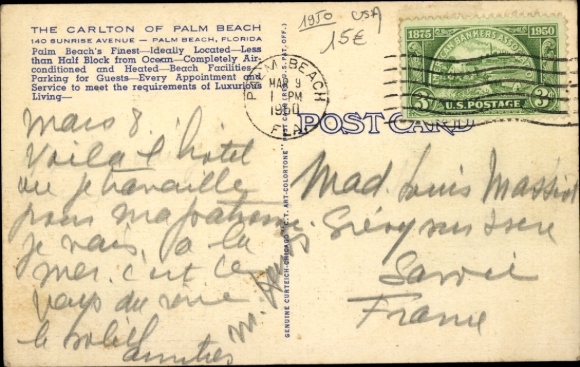 THE CARLTON OF PALM BEACH
140 SUNRISE AVENUE — PALM BEACH, FLORIDA
Palm Beach's Finest—Ideally Located—Less
than Half Block from Ocean—Completely Air-
conditioned and Heated—Beach Facilities—
Parking for Guests—Every Appointment and
Service to meet the requirements of Luxurious
Living—
mars 8
Voila l hotel
ou je travaille
pour ma patronne
je vais a la
mer. c'est le
pays du reve
le soleil
amities
GENUINE CURTEICH-CHICAGO "C.T. ART-COLORTONE" POST CARD (REG. U.S. PAT. OFF.)
1950 USA
15€
PALM BEACH
MAR 9
1 PM
1950
FLA
1875 1950
AMERICAN BANKERS ASSOCIATION
3¢ U.S. POSTAGE 3¢
POST CARD
Mad. Louis Massiot
Grésy sur Isere
Savoie
France